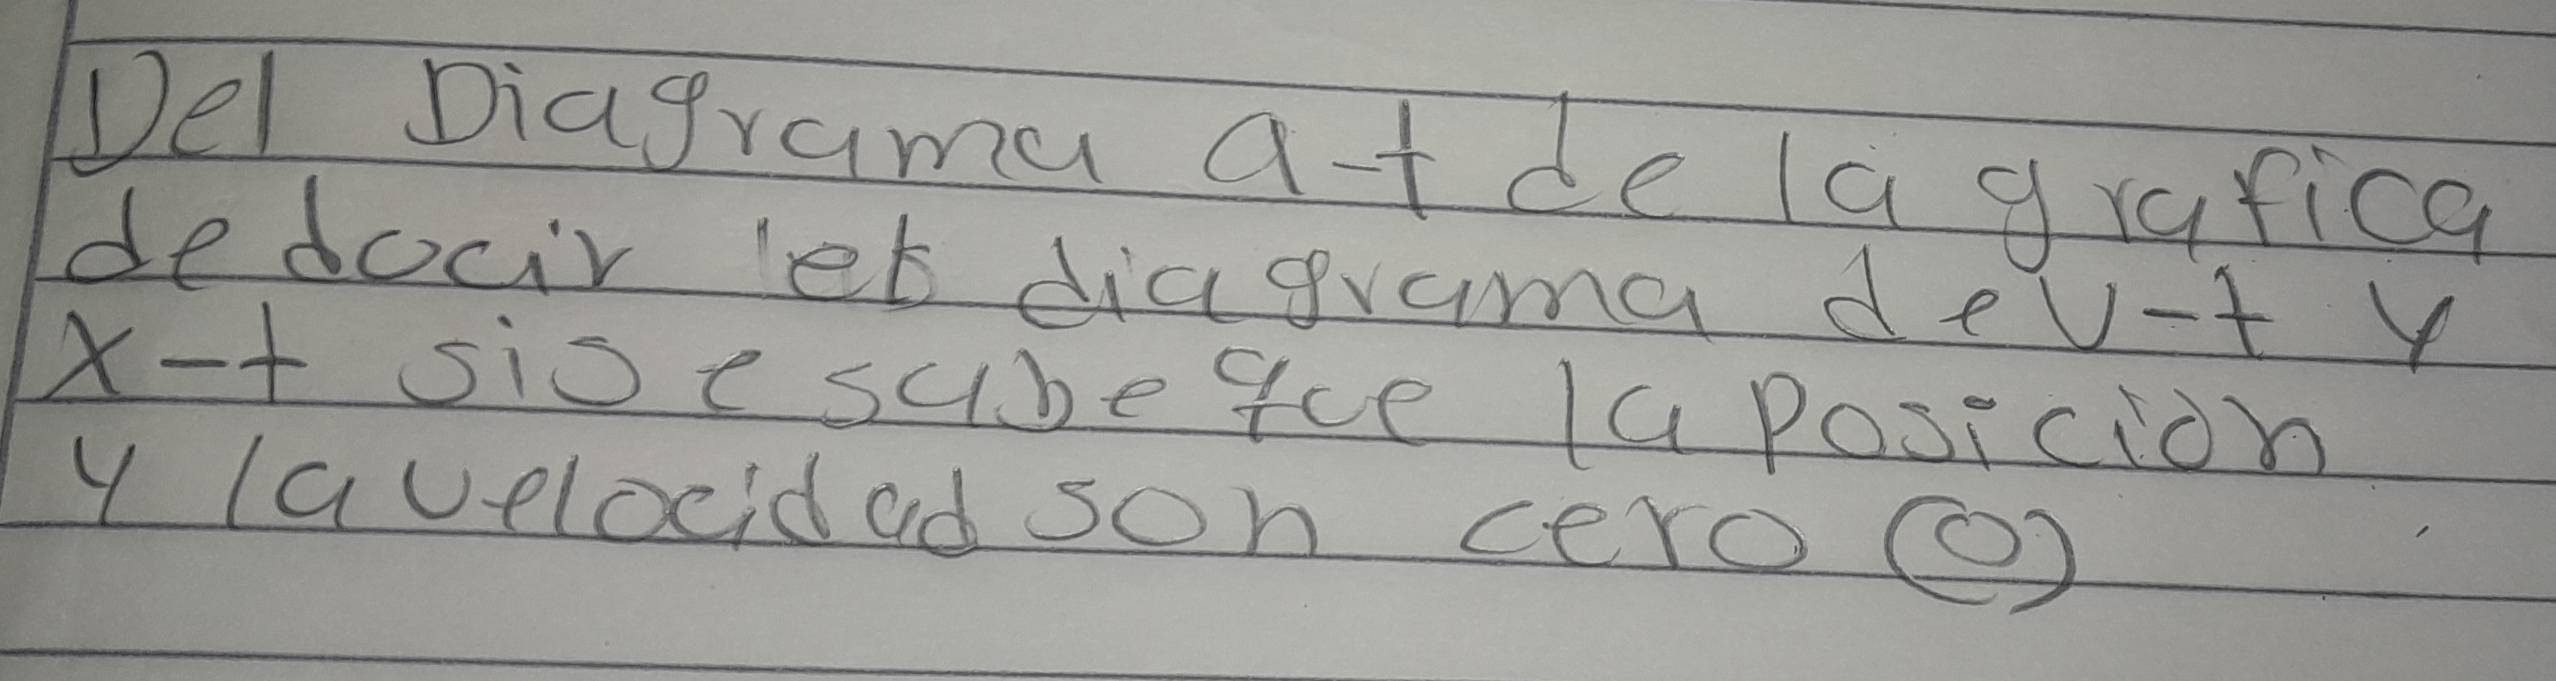 Del Diagrama a-t de la grafica
dedocir el diagrama de v-t y
x-t si se sabe que la posición
y la velocidad son cero (0)